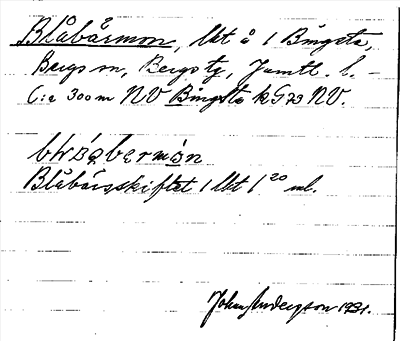 Blåbärmon, lkt å 1 Bingsta,
Bergs sn, Bergs tg, Jämtl. l. –
C:a 300 m NV Bingsta k G 73 NV.
Blåbärsskiftet 1 lkt 1 20 ml.
Johan Anderson 1931.